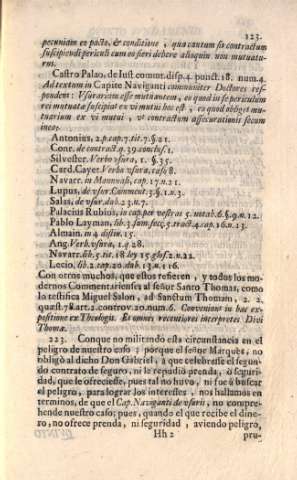 123.
pecuniam ex pacto, & conditione, qua cautum so contractum
suscipiendi periculi cum eo fieri debere alioquin non mutuatu-
rus.
Castro Palao, de Iust commut. disp. 4. punct. 18. num. 4.
Ad textum in Capite Naviganti communiter Doctores res-
pondent: Vsurarium esse mutuantem, eo quod in se periculum
rei mutuatæ suscipiat ex vi mutui hoc est, ex quo obliget mu-
tuarium ex vi mutui, vt contractum assecurationis secum
ineat.
Antonius, 2. p. cap. 7. tit. 7. §. 21.
Conr. de contract. q. 39. conclus. 1.
Silvester. Verbo vsura, 1. §. 35.
Card. Cayet. Verbo vsura, casu 8.
Navarr. in Mannuali, cap. 17. n. 21.
Lupus, de vsur. Comment. 3. §. 1. n. 3.
Salas, de vsur. dub. 23. n. 7.
Palacius Rubius, in cap. per vestras 5. notab. 6. §. 9. n. 12.
Pablo Layman, lib. 3. sum. sect. 5. tract. 4. cap. 16. n. 13.
Almain. in 4 distin. 15.
Ang. Verb. vsura, 1. q. 28.
Navarr. lib. 5. tit. 18 ley 15. glos. 2. n. 22.
Lecio, lib. 2. cap. 20. dub. 15. n. 116.
Con otros muchos, que estos refieren, y todos los mo-
dernos Commentariensés al señor Santo Thomas, como
lo testifica Miguel Salon, ad Sanctum Thomam, 2. 2.
quæst. 78. art. 2. controv. 20. num. 6. Conveniunt in hac ex-
positione ex Theologis. Et omnes recentiores interpretes Divi
Thomæ.
223. Conque no militando esta circunstancia en el
peligro de nuestro caso; porque el señor Marquès, no
obligò al dicho Don Gabriel, à que celebrasse el segun-
do contrato de seguro, ni le repudiò prenda, ò seguri-
dad, que le ofreciesse, pues tal no huvo, ni fue à buscar
el peligro, para lograr los interesses, nos hallamos en
terminos, de que el Cap. Naviganti de vsuris, no compre-
hende nuestro caso; pues, quando el que recibe el dine-
ro, no ofrece prenda, ni seguridad, aviendo peligro,
Hh 2 pru-